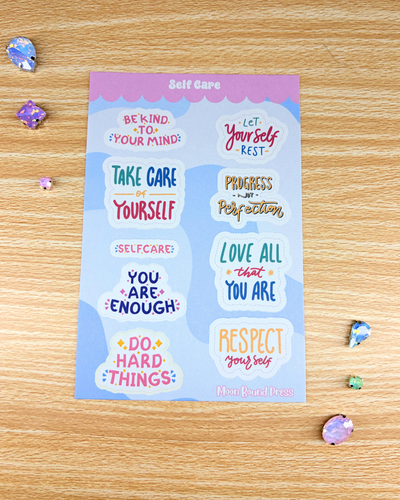 Self Care
BE KIND
TO
YOUR MIND
LET
Yourself
REST
TAKE CARE
of
YOURSELF
PROGRESS
NOT
Perfection
SELFCARE
LOVE ALL
that
YOU ARE
YOU
ARE
ENOUGH
RESPECT
yourself
DO
HARD
THINGS
Moon Bound Press